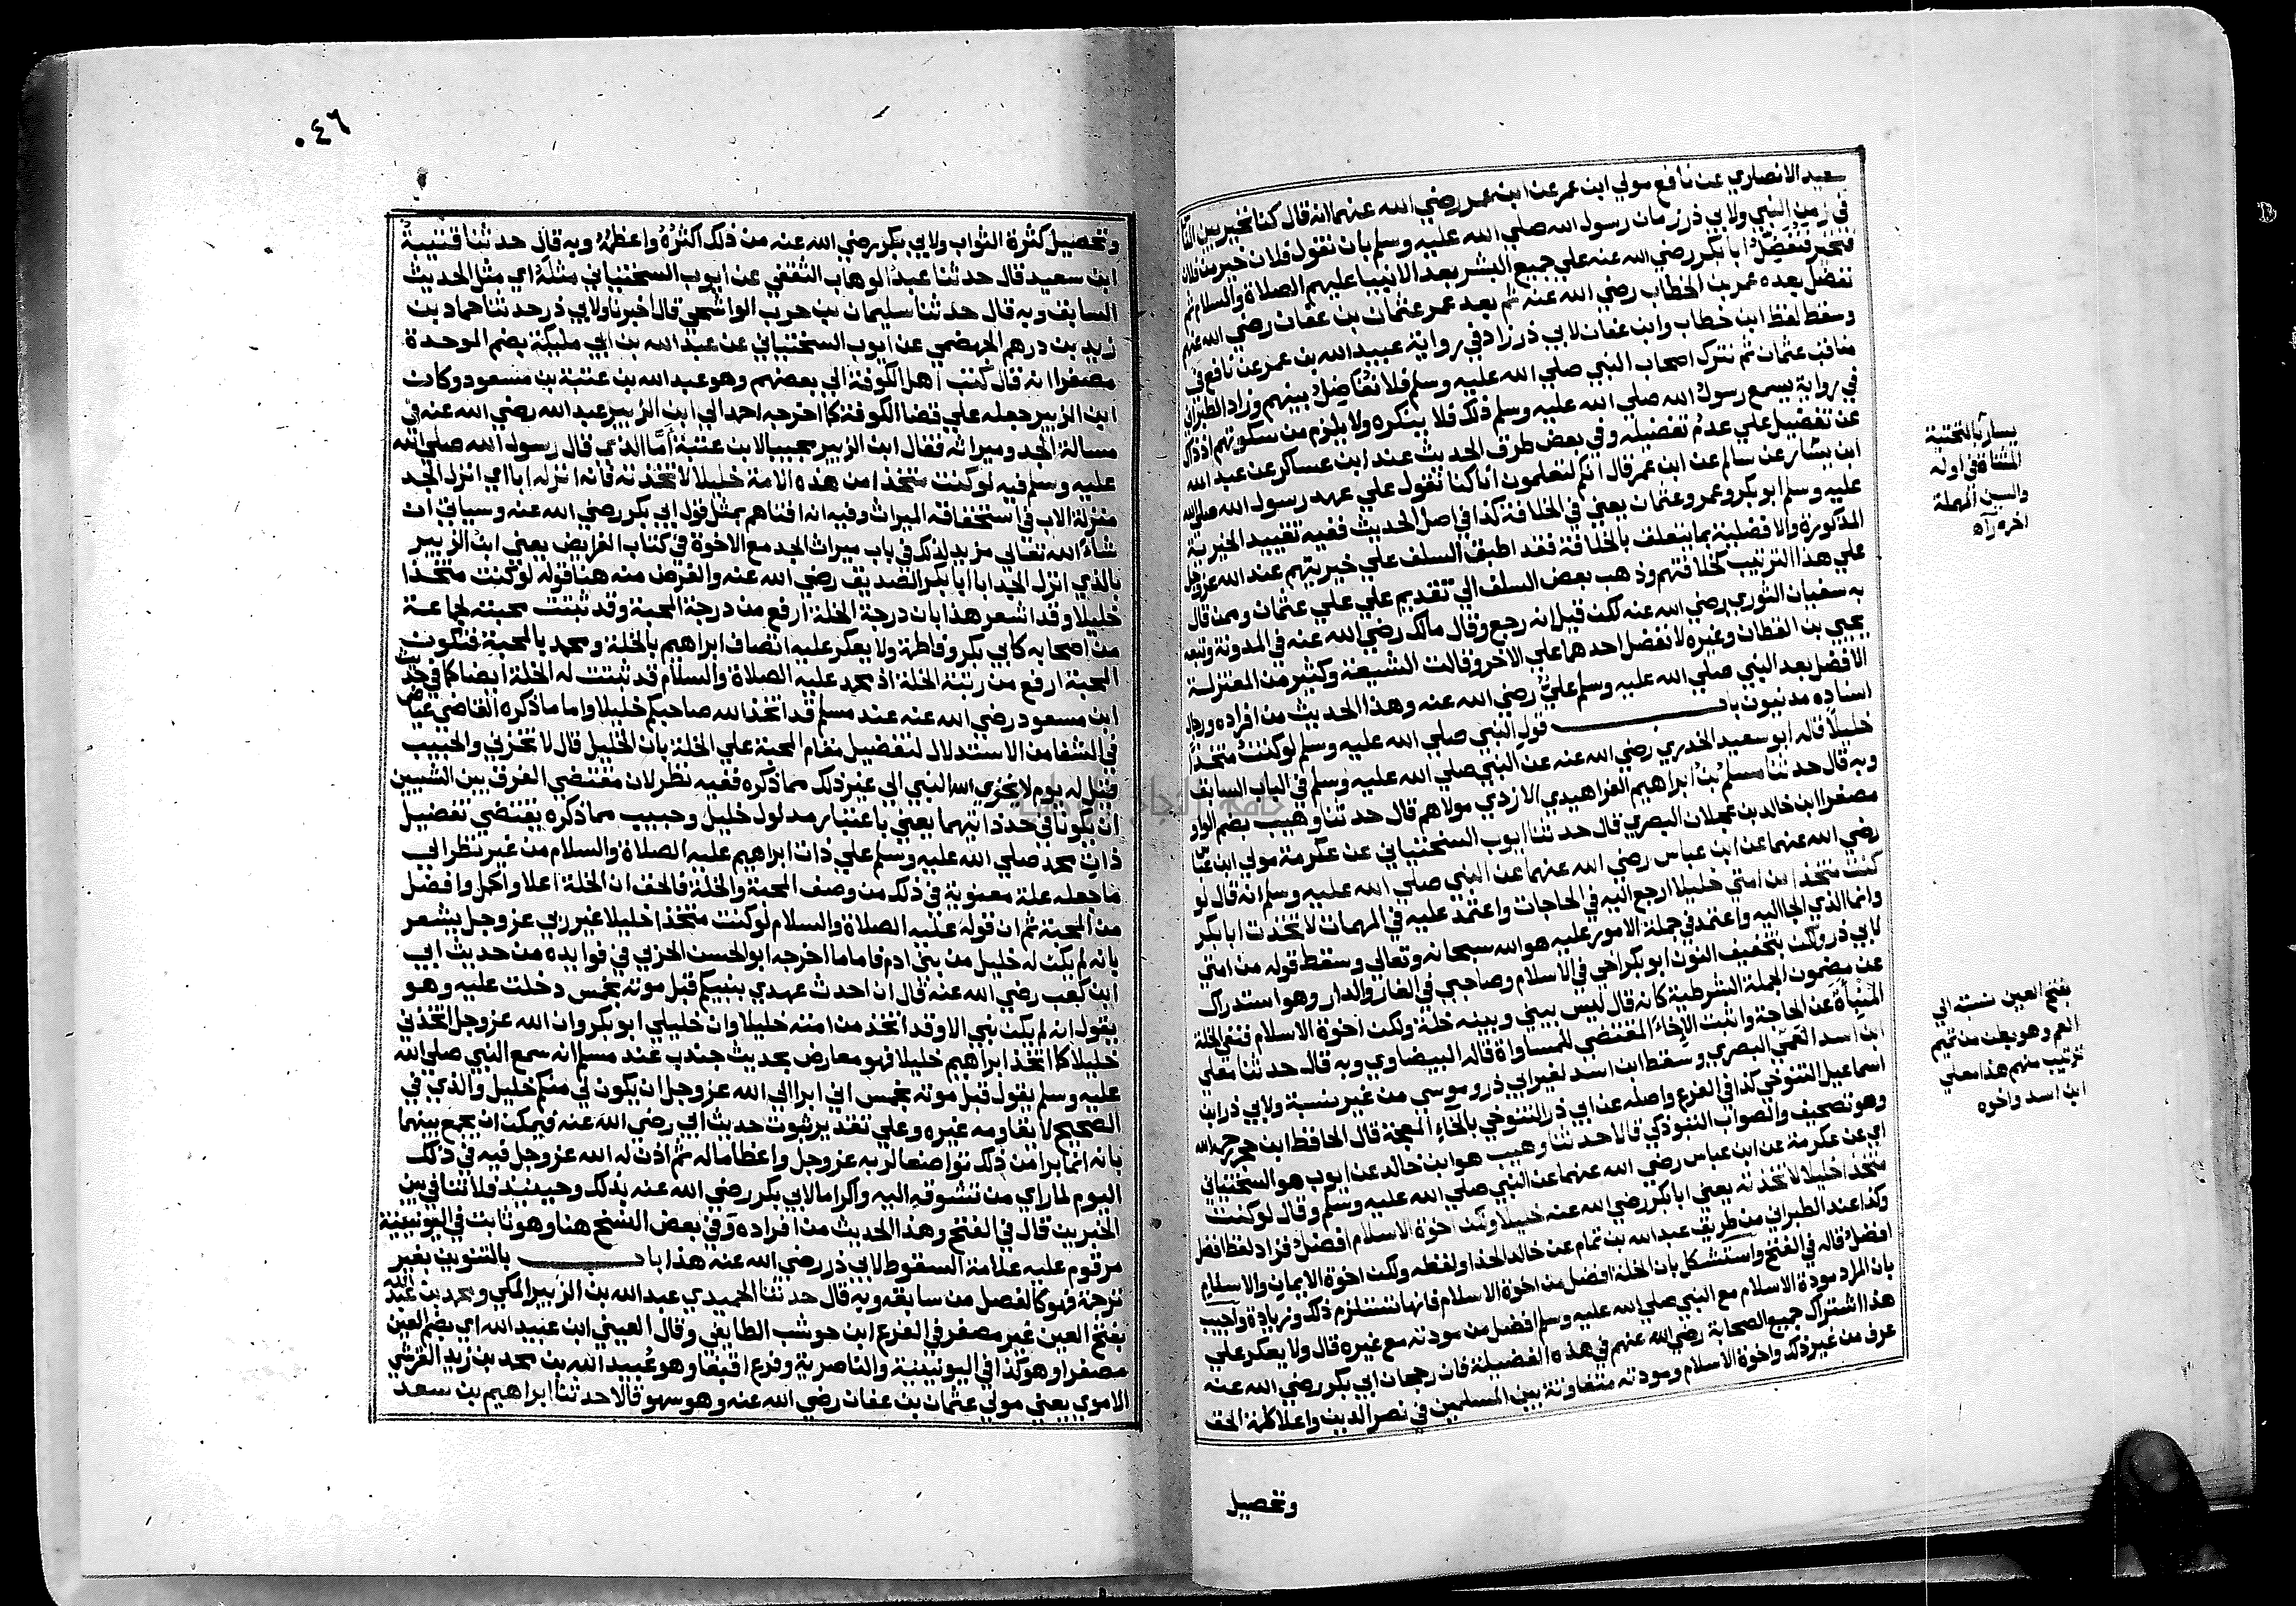 سعيد الانصاري عن نافع مولي ابن عمر عن ابن عمر رضي الله عنهما انه قال كنا نخير بين الناس
في زمن النبي ولابي ذر زمان رسول الله صلي الله عليه وسلم بان نقول فلان خير من فلان
فنخير فنفضل ابا بكر رضي الله عنه علي جميع البشر بعد الانبيا عليهم الصلاة والسلام ثم
نفضل بعده عمر بن الخطاب رضي الله عنه ثم بعد عمر عثمان بن عفان رضي الله عنهم
وسقط لفظ ابن خطاب وابن عفان لابي ذر زاد في رواية عبيد الله بن عمر عن نافع في
مناقب عثمان ثم نترك اصحاب النبي صلي الله عليه وسلم فلا نفاضل بينهم وزاد الطبراني
في رواية يسمع رسول الله صلي الله عليه وسلم ذلك فلا ينكره ولا يلزم من سكوتهم اذ ذاك
عن تفضيل علي عدم تفضيله وفي بعض طرق الحديث عند ابن عساكر عن عبد الله
ابن يسار عن سالم عن ابن عمر قال انكم لتعلمون انا كنا نقول علي عهد رسول الله صلي الله
عليه وسلم ابو بكر وعمر وعثمان يعني في الخلافة كذا في اصل الحديث ففيه تقييد الخيرية
المذكورة والافضلية بما يتعلق بالخلافة فقد اطبق السلف علي خيريتهم عند الله عز وجل
علي هذا الترتيب كخلافتهم وذهب بعض السلف الي تقديم علي علي عثمان وممن قال
به سفيان الثوري رضي الله عنه لكن قيل انه رجع وقال مالك رضي الله عنه في المدونة وتبعه
يحيي بن القطان وغيره لا نفضل احدهما علي الاخر وقالت الشيعة وكثير من المعتزلة
الافضل بعد النبي صلي الله عليه وسلم علي رضي الله عنه وهذا الحديث من افراده ورجال
اسناده مدنيون باب قول النبي صلي الله عليه وسلم لو كنت متخذا
خليلا قاله ابو سعيد الخدري رضي الله عنه عن النبي صلي الله عليه وسلم في الباب السابق
وبه قال حدثنا مسلم بن ابراهيم الفراهيدي الازدي مولاهم قال حدثنا وهيب بضم الواو
مصغرا ابن خالد بن عجلان البصري قال حدثنا ايوب السختياني عن عكرمة مولي ابن عباس
رضي الله عنهما عن ابن عباس رضي الله عنهما عن النبي صلي الله عليه وسلم انه قال لو
كنت متخذا من امتي خليلا ارجع اليه في الحاجات واعتمد عليه في المهمات لاتخذت ابا بكر
وانما الذي الجا اليه واعتمد في جملة الامور عليه هو الله سبحانه وتعالي وسقط قوله من امتي
لابي ذر ولكن بتخفيف النون ابو بكر اخي في الاسلام وصاحبي في الغار والدار وهو استدراك
عن مضمون الجملة الشرطية كانه قال ليس بيني وبينه خلة ولكن اخوة الاسلام فنفي الخلة
المنبأة عن الحاجة واثبت الإخاء المقتضي للمساواة قاله البيضاوي وبه قال حدثنا معلي
ابن اسد العمّي البصري وسقط ابن اسد لغير ابي ذر وموسي من غير نسبة ولابي ذر ابن
اسماعيل التنوخي كذا في الفرع واصله عن ابي ذر التنوخي بالخاء المعجمة قال الحافظ ابن حجر رحمه الله
وهو تصحيف والصواب التبوذكي قالا حدثنا وهيب هو ابن خالد عن ايوب هو السختياني
اي عن عكرمة عن ابن عباس رضي الله عنهما عن النبي صلي الله عليه وسلم وقال لو كنت
متخذا خليلا لاتخذته يعني ابا بكر رضي الله عنه خليلا ولكن اخوة الاسلام افضل فزاد لفظ افضل
وكذا عند الطبراني من طريق عبد الله بن تمام عن خالد الحذا ولفظه ولكن اخوة الايمان والاسلام
افضل قاله في الفتح واستشكل بان الخلة افضل من اخوة الاسلام فانها تستلزم ذلك وزيادة واجيب
بان المراد مودة الاسلام مع النبي صلي الله عليه وسلم افضل من مودته مع غيره قال ولا يعكر علي
هذا اشتراك جميع الصحابة رضي الله عنهم في هذه الفضيلة فان رجحان ابي بكر رضي الله عنه
عرف من غير ذلك واخوة الاسلام ومودته متفاوتة بين المسلمين في نصر الدين واعلا كلمة الحق
وتحصيل
يسار بالتحتية
المثناة في اوله
والسين المهملة
اخره رآء
بفتح العين نسبة الي
العم وهو بطن من تميم
منهم هذا معلي
ابن اسد واخوه
٠٤٦
وتحصيل كثرة الثواب ولابي بكر رضي الله عنه من ذلك اكثره واعظمه وبه قال حدثنا قتيبة
ابن سعيد قال حدثنا عبد الوهاب الثقفي عن ايوب السختياني مثله اي مثل الحديث
السابق وبه قال حدثنا سليمان بن حرب الواشحي قال اخبرنا ولابي ذر حدثنا حماد بن
زيد بن درهم الجهضمي عن ايوب السختياني عن عبد الله بن ابي مليكة بضم الموحدة
مصغرا انه قال كتب اهل الكوفة الي بعضهم وهو عبد الله بن عتبة بن مسعود وكان
ابن الزبير جعله علي قضا الكوفة كما اخرجه احمد الي ابن الزبير عبد الله رضي الله عنه في
مسالة الجد وميراثه فقال ابن الزبير مجيبا لابن عتبة أمّا الذي قال رسول الله صلي الله
عليه وسلم فيه لو كنت متخذا من هذه الامة خليلا لاتخذته فانه انزله ابا اي انزل الجد
منزلة الاب في استحقاقه الميراث وفيه انه افتاهم بمثل قول ابي بكر رضي الله عنه وسياتي ان
شاء الله تعالي مزيد لذلك في باب ميراث الجد مع الاخوة في كتاب الفرايض يعني ابن الزبير
بالذي انزل الجد ابا ابا بكر الصديق رضي الله عنه والغرض منه هنا قوله لو كنت متخذا
خليلا وقد اشعر هذا بان درجة الخلة ارفع من درجة المحبة وقد ثبتت محبته لجماعة
من اصحابه كابي بكر وفاطمة ولا يعكر عليه اتصاف ابراهيم بالخلة ومحمد بالمحبة فتكون
المحبة ارفع من رتبة الخلة اذ محمد عليه الصلاة والسلام قد ثبتت له الخلة ايضا كما في حديث
ابن مسعود رضي الله عنه عند مسلم قد اتخذ الله صاحبكم خليلا واما ما ذكره القاضي عياض
في الشفا من الاستدلال لتفضيل مقام المحبة علي الخلة بان الخليل قال لا تخزني والحبيب
قيل له يوم لا يخزي الله النبي الي غير ذلك مما ذكره ففيه نظر لان مقتضي الفرق بين الشيين
ان يكونا في حد ذاتيهما يعني باعتبار مدلول خليل وحبيب مما ذكره يقتضي تفضيل
ذات محمد صلي الله عليه وسلم علي ذات ابراهيم عليه الصلاة والسلام من غير نظر الي
ما جعله علة معنوية في ذلك من وصف المحبة والخلة فالحق ان الخلة اعلا واكمل وافضل
من المحبة ثم ان قوله عليه الصلاة والسلام لو كنت متخذا خليلا غير ربي عز وجل يشعر
بانه لم يكن له خليل من بني ادم فاما ما اخرجه ابو الحسن الحربي في فوايده من حديث ابي
ابن كعب رضي الله عنه قال ان احدث عهدي بنبيكم قبل موته بخمس دخلت عليه وهو
يقول انه لم يكن نبي الا وقد اتخذ من امته خليلا وان خليلي ابو بكر وان الله عز وجل اتخذني
خليلا كما اتخذ ابراهيم خليلا فهو معارض بحديث جندب عند مسلم انه سمع النبي صلي الله
عليه وسلم يقول قبل موته بخمس اني ابرا الي الله عز وجل ان يكون لي منكم خليل والذي في
الصحيح لا يقاومه غيره وعلي تقدير ثبوت حديث ابي رضي الله عنه فيمكن ان يجمع بينهما
بانه انما برا من ذلك تواضعا لربه عز وجل واعظاما له ثم اذن له الله عز وجل فيه في ذلك
اليوم لما راي من تشوقه اليه واكراما لابي بكر رضي الله عنه بذلك وحينيذ فلا تنافي بين
الخبرين قال في الفتح وهذا الحديث من افراده وفي بعض النسخ هنا وهو ثابت في اليونينية
مرقوم عليه علامة السقوط لابي ذر رضي الله عنه هذا باب بالتنوين بغير
ترجمة فهو كالفصل من سابقه وبه قال حدثنا الحميدي عبد الله بن الزبير المكي ومحمد بن عبد الله
بفتح العين غير مصغر في الفرع ابن حوشب الطايفي وقال العيني ابن عبيد الله اي بضم العين
مصغرا وهو كذا في اليونينية والناصرية وفرع اقبغا وهو عبيد الله بن محمد بن زيد القرشي
الاموي يعني مولي عثمان بن عفان رضي الله عنه وهو سهو قالا حدثنا ابراهيم بن سعد